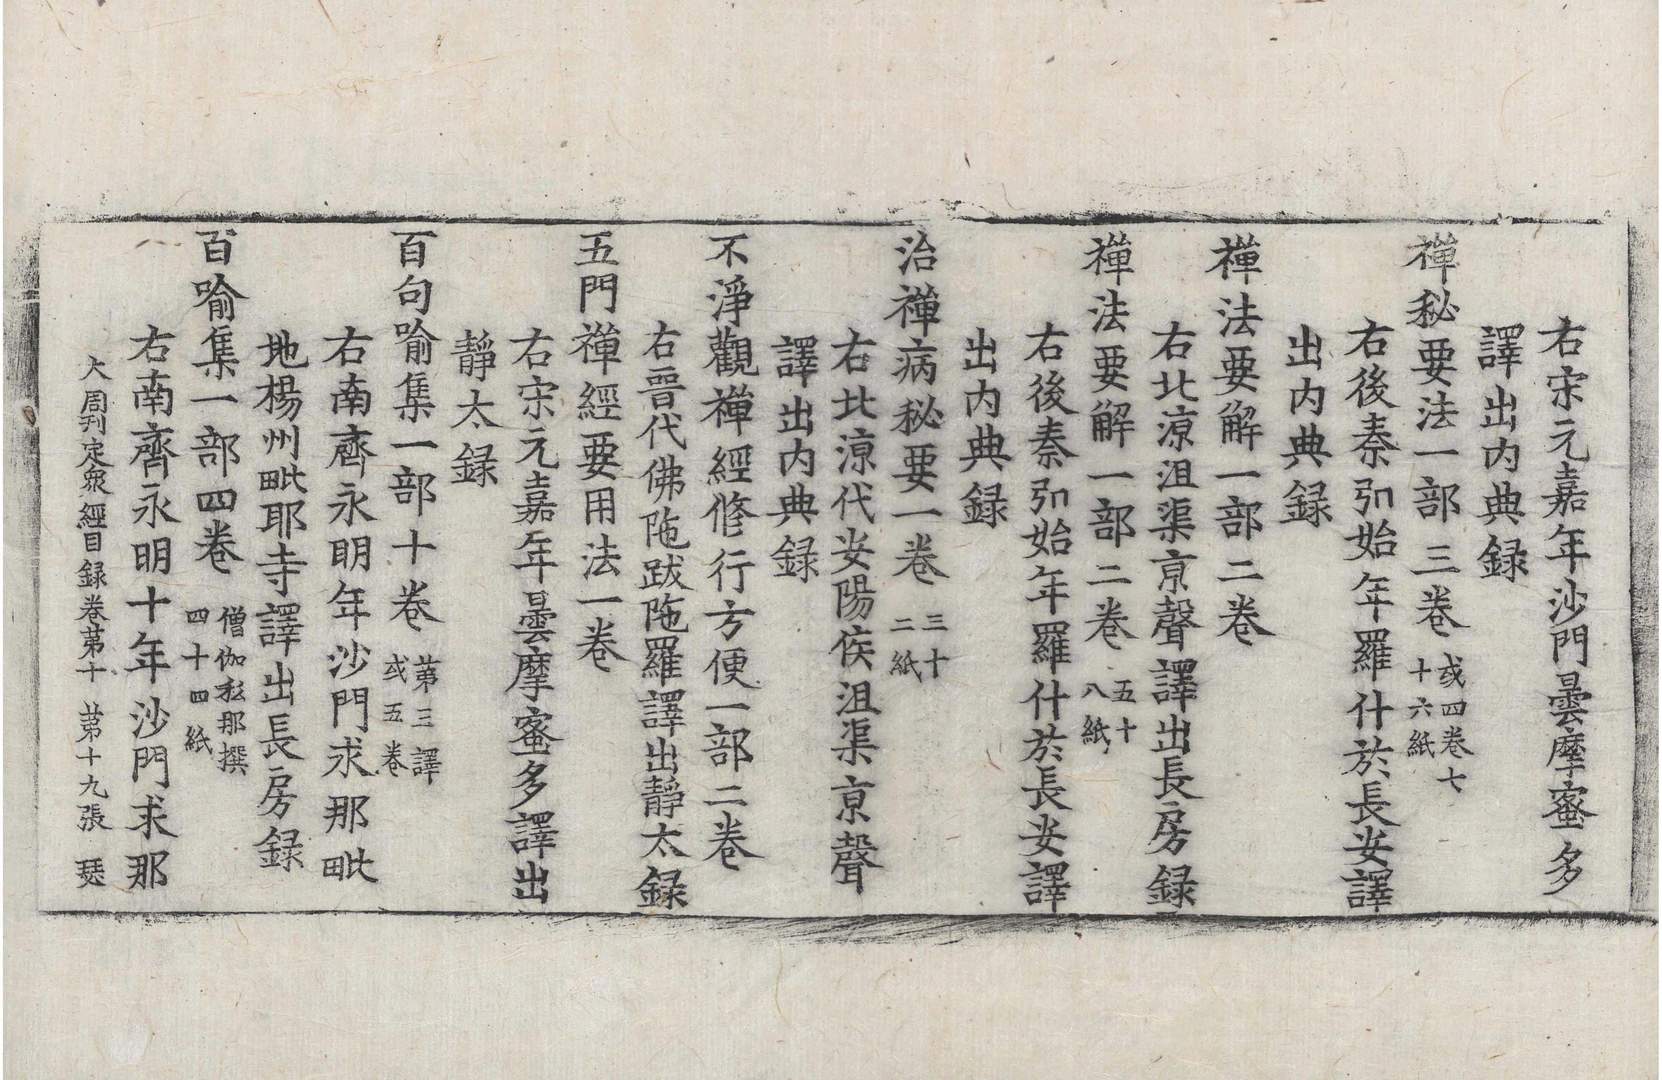 右宋元嘉年沙門曇摩蜜多
譯出内典録
禪秘要法一部三卷 或四卷七十六紙
右後秦弘始年羅什於長安譯
出内典録
禪法要解一部二卷
右北涼沮渠京聲譯出長房録
禪法要解一部二卷 五十八紙
右後秦弘始年羅什於長安譯
出内典録
治禪病秘要一卷 三十二紙
右北涼代安陽侯沮渠京聲
譯出内典録
不淨觀禪經修行方便一部二卷
右晉代佛陁跋陁羅譯出靜太録
五門禪經要用法一卷
右宋元嘉年曇摩蜜多譯出
靜太録
百句喻集一部十卷 第三譯或五卷
右南齊永明年沙門求那毗
地楊州毗耶寺譯出長房録
百喻集一部四卷 僧伽斯那撰四十四紙
右南齊永明十年沙門求那
大周刊定衆經目録卷苐十 苐十九張 瑟